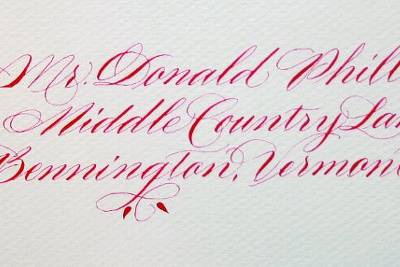 Mr. Donald Phill
Middle Country Lan
Bennington, Vermont